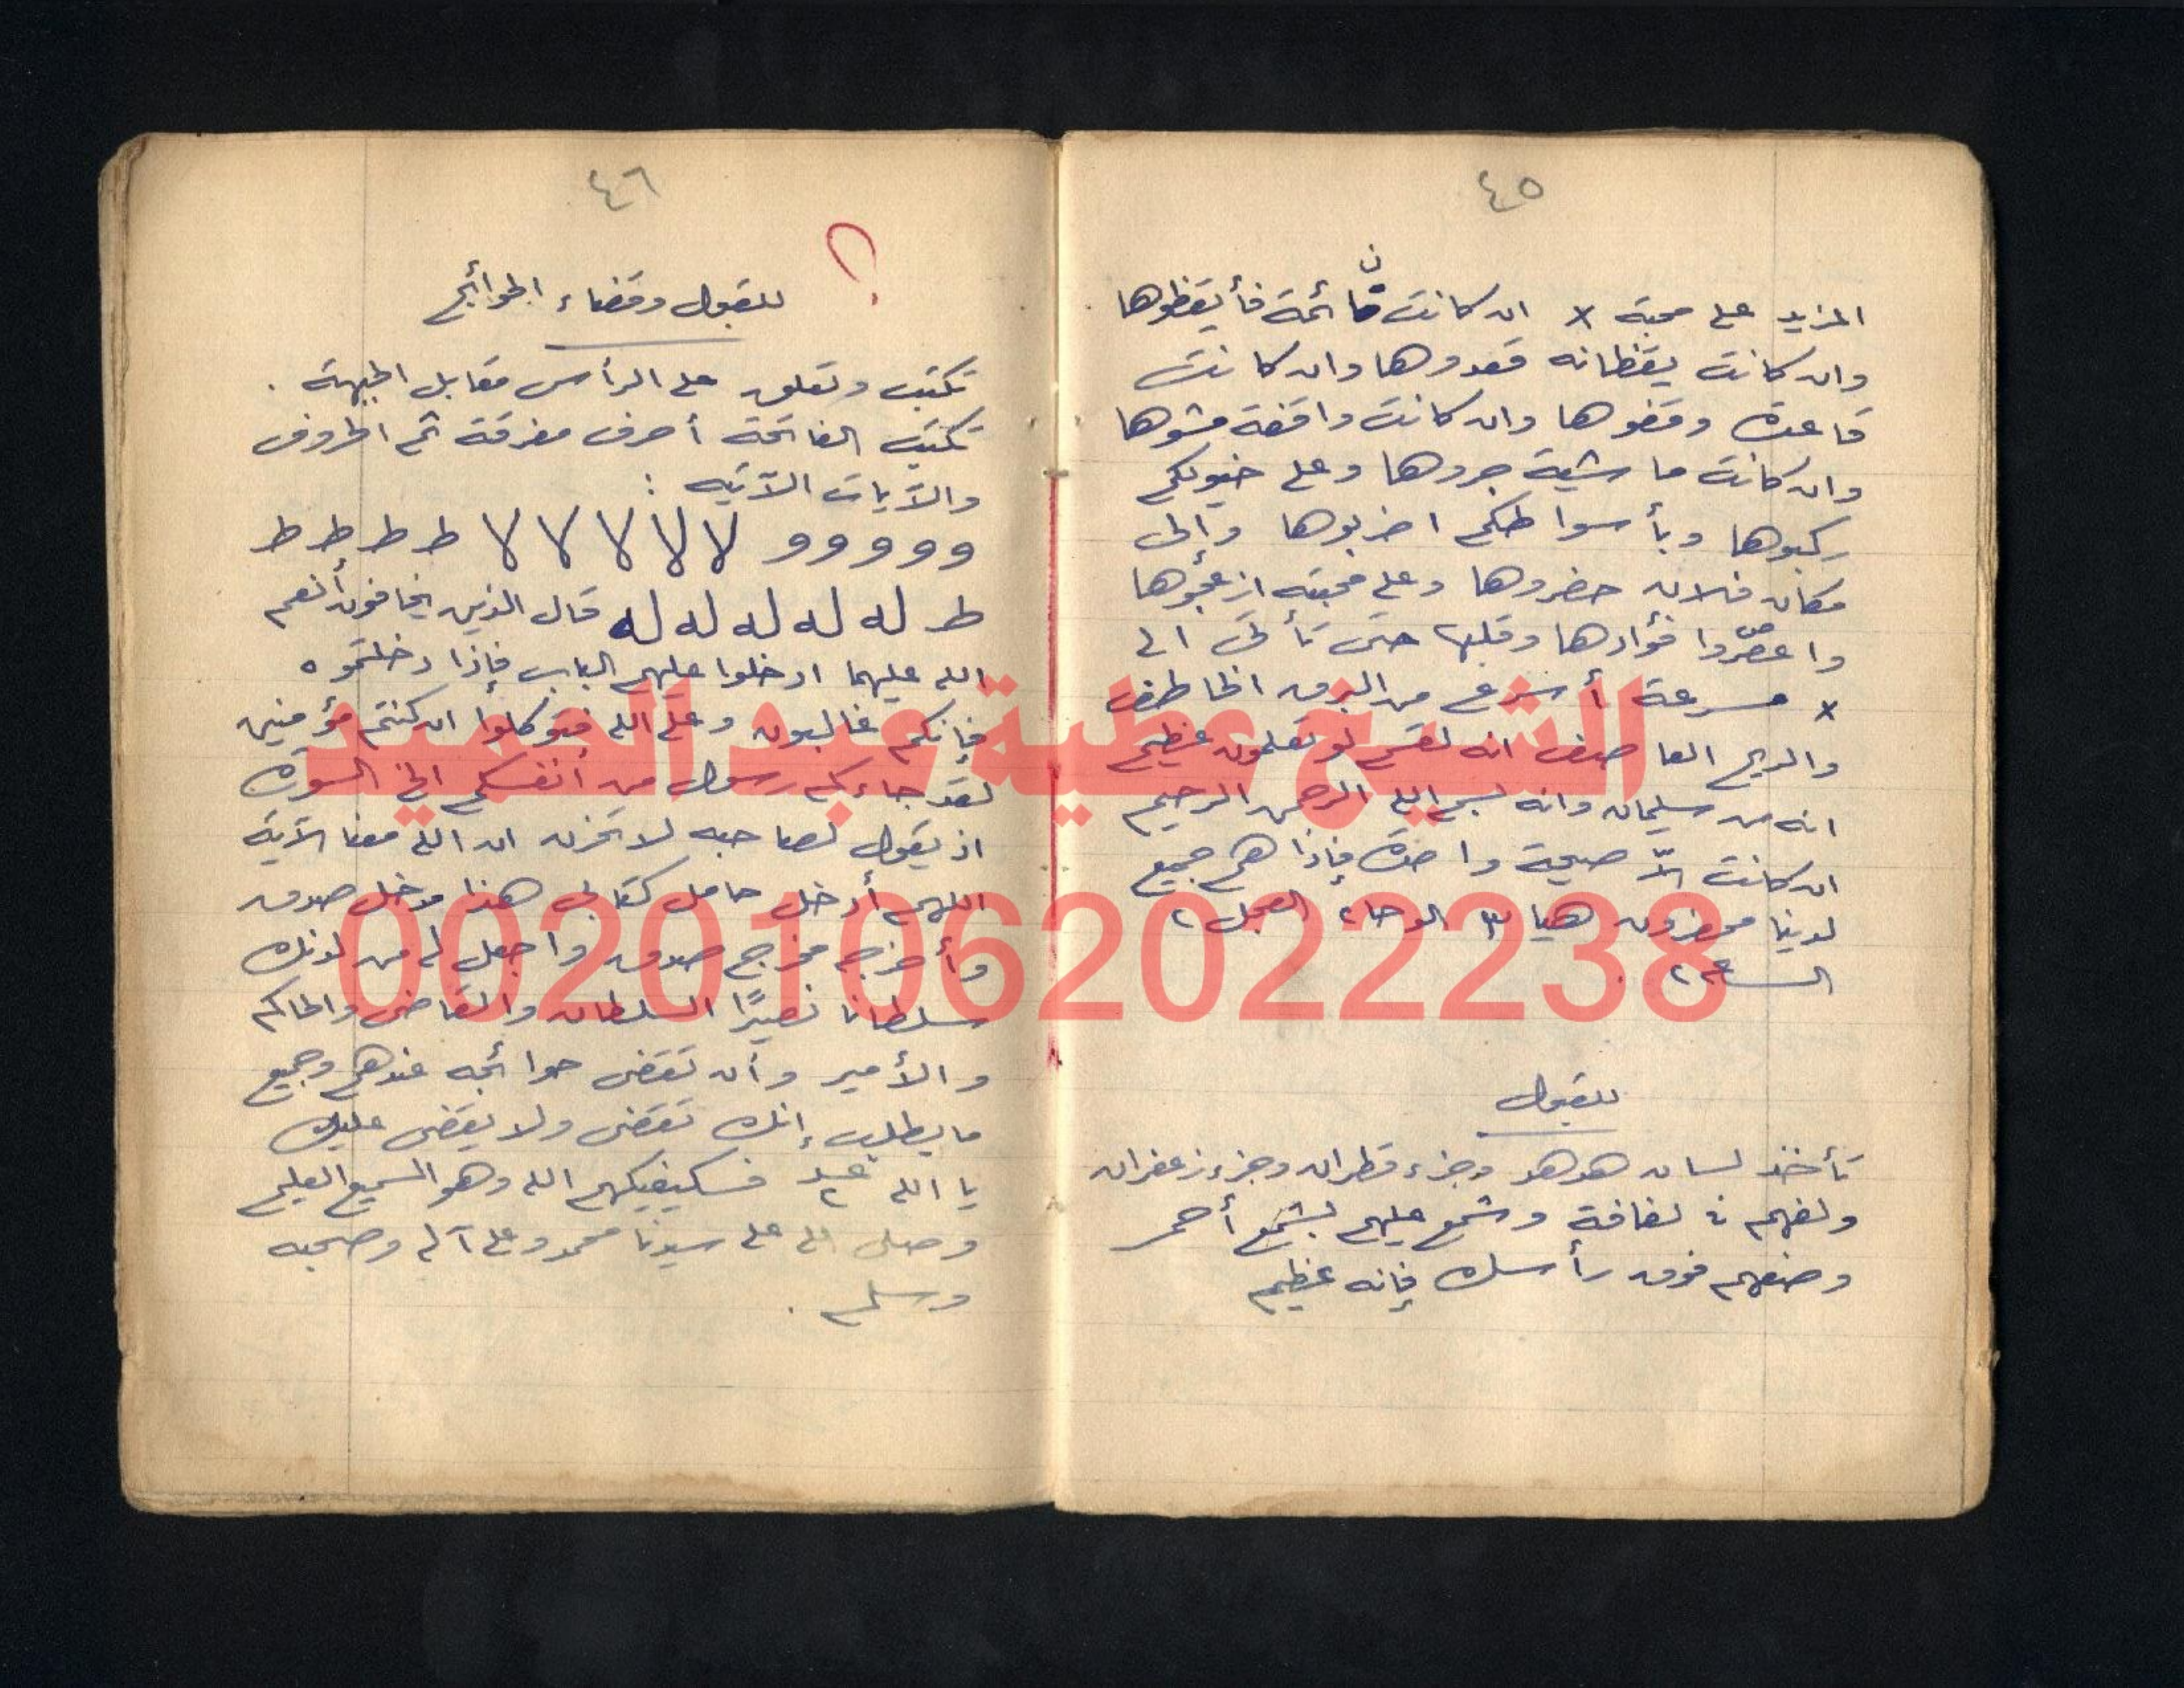 ٤٥
المزيد على محبة x ان كانت نائمة فأيقظوها
وان كانت يقظانه قعدوها وان كانت
قاعدة وقفوها وان كانت واقفة مشوها
وان كانت ماشية جروها وعلى خيولكم
ركبوها وبأسواطكم اضربوها وإلى
مكان فلان حضروها وعلى محبته ازعجوها
واعصروا فؤادها وقلبها حتى تأتى الى
x مسرعة أسرع من البرق الخاطف
والريح العاصف انه لقسم لو تعلمون عظيم
انه من سليمان وانه بسم الله الرحمن الرحيم
ان كانت الاّ صيحة واحدة فإذا هم جميع
لدينا محضرون هيا ٣ الوحا ٢ العجل ٢
الساعه ٢
للقبول
تأخذ لسان هدهد وجزء قطران وجزء زعفران
ولفهم فى لفافة وشمع عليهم بشمع أحمر
وضعهم فوق رأسك فإنه عظيم
٤٦
؟
للقبول وقضاء الحوائج
تكتب وتعلق على الرأس مقابل الجبهة .
تكتب الفاتحة أحرف مفرقة ثم الحروف
والآيات الآتيه :
و و و و و لا لا لا لا لا ط ط ط ط
ط له له له له له قال الذين يخافون أنعم
الله عليهما ادخلوا عليهم الباب فإذا دخلتموه
فإنكم غالبون وعلى الله فتوكلوا ان كنتم مؤمنين
لقد جاءكم رسول من أنفسكم الخ السورة
اذ يقول لصاحبه لا تحزن ان الله معنا الآية
اللهم أدخل حامل كتابى هذا مدخل صدق
وأخرجه مخرج صدق واجعل له من لدنك
سلطانا نصيرًا السلطان والقاضى والحاكم
والأمير وأن تقضى حوائجه عندهم وجميع
ما يطلب إنك تقضى ولا يقضى عليك
يا الله ٢ فسيكفيكهم الله وهو السميع العليم
وصلى الله على سيدنا محمد وعلى آله وصحبه
وسلم .
الشيخ عطية عبد الحميد
00201062022238